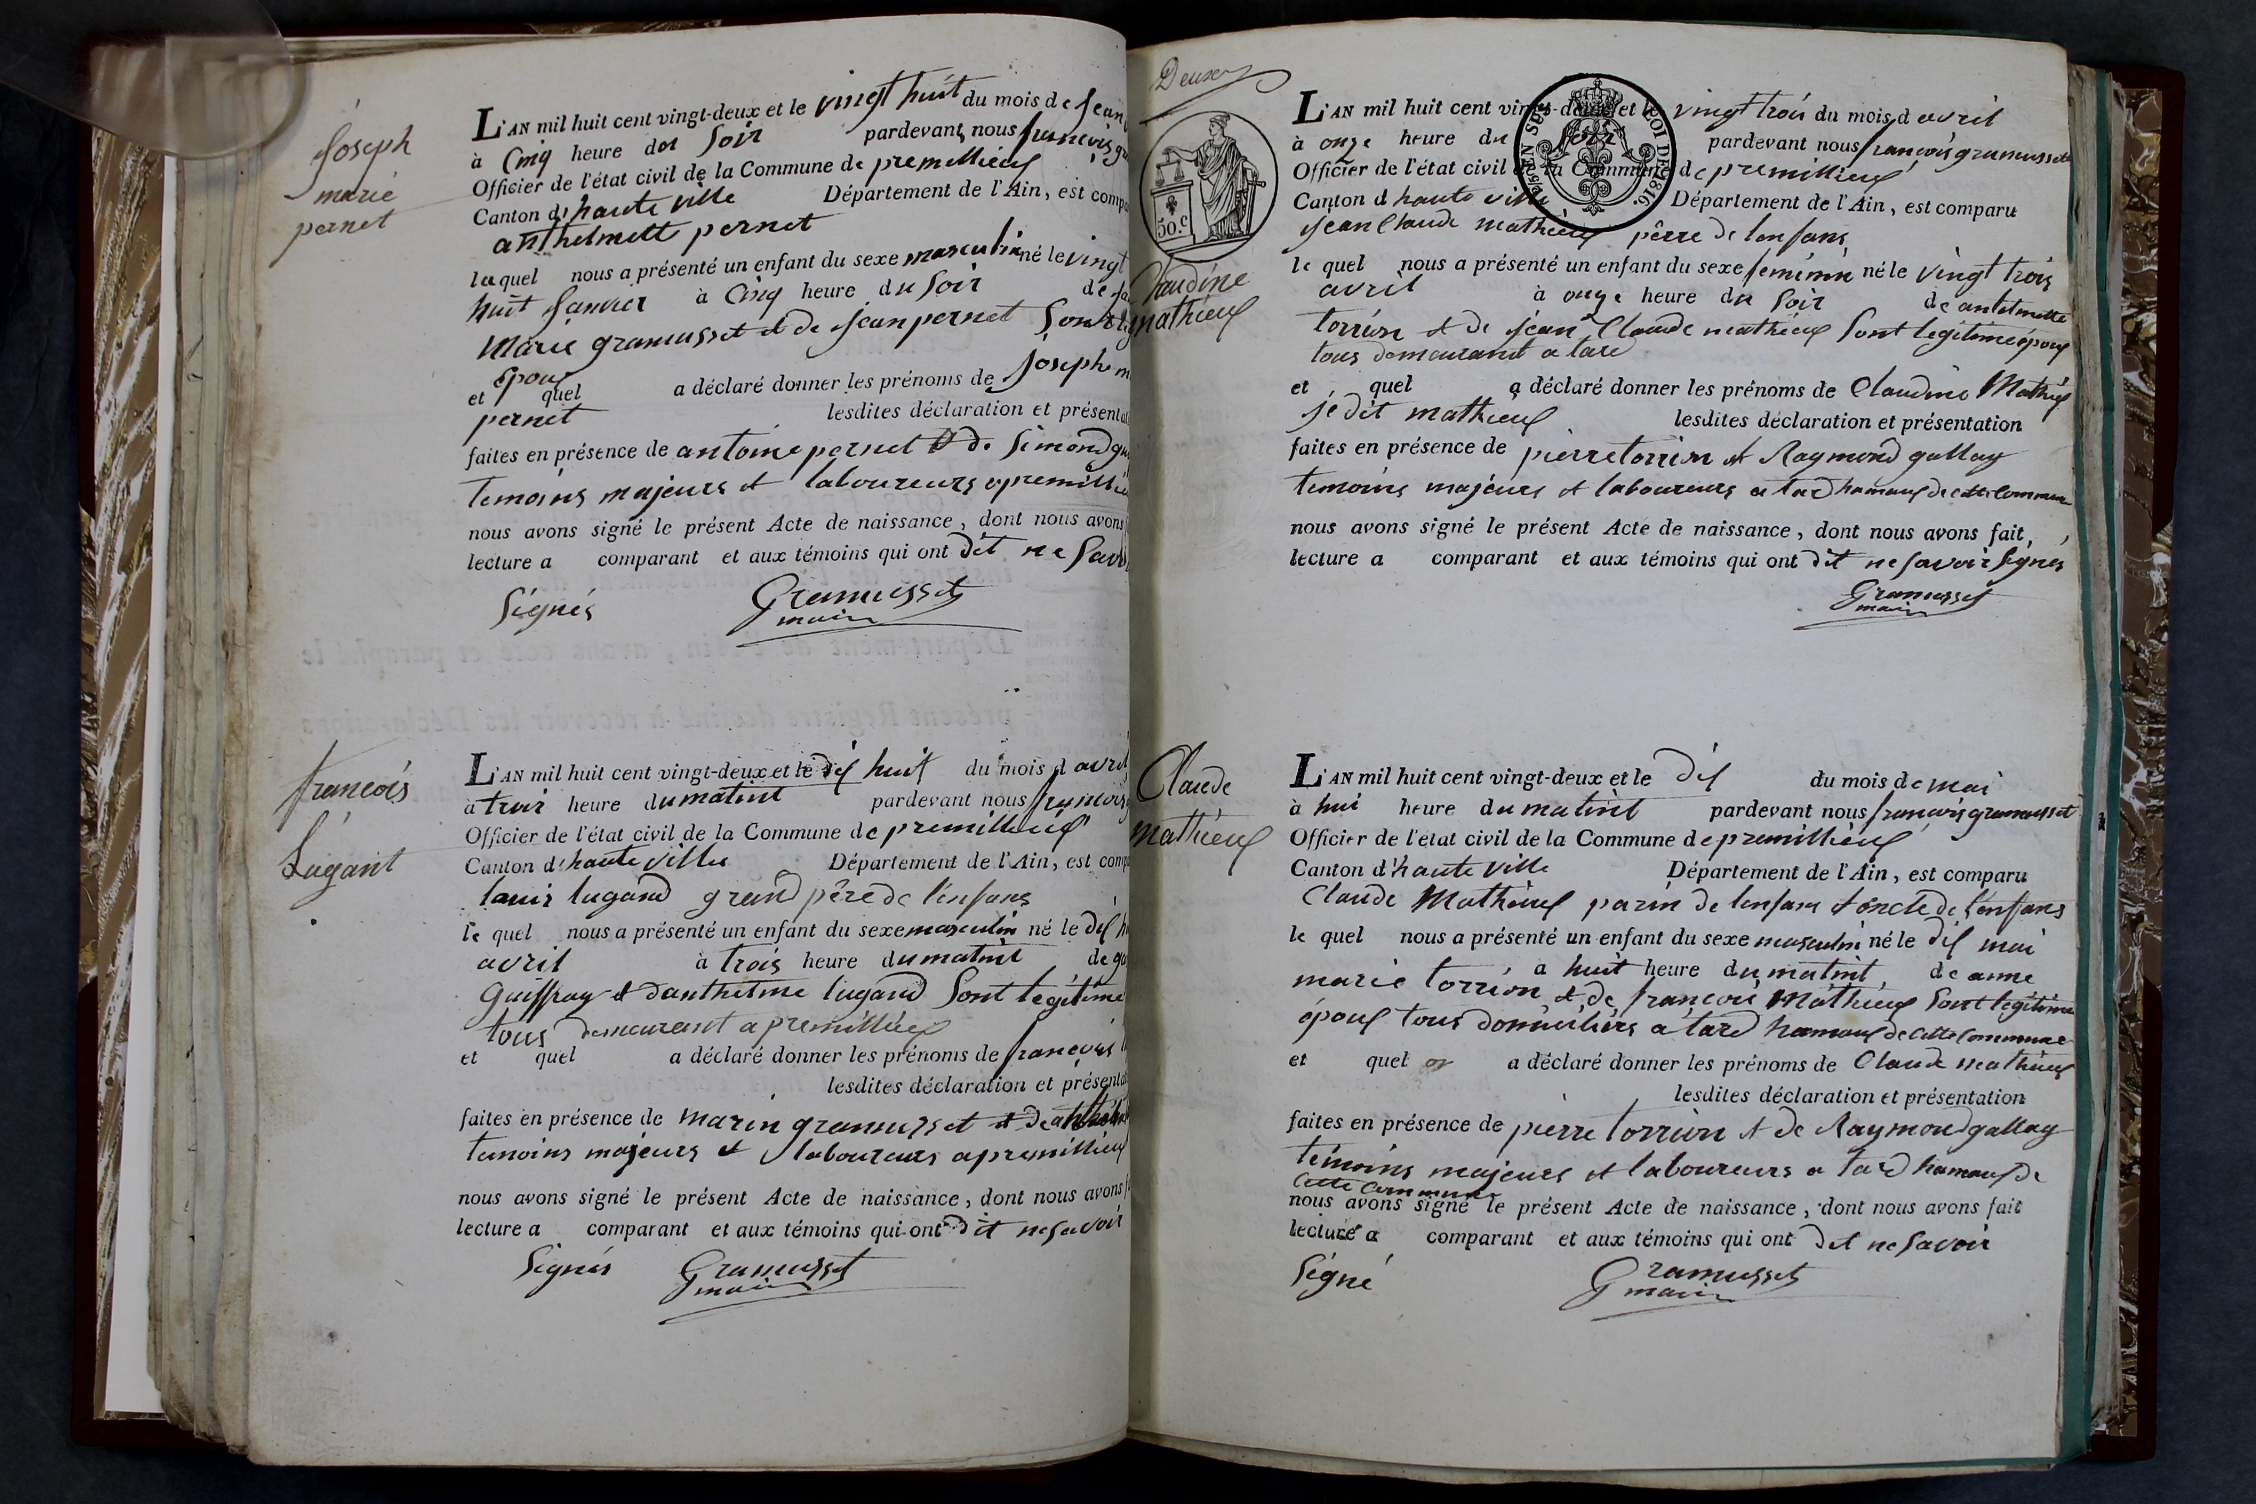 Joseph
marie
pernet
L'AN mil huit cent vingt-deux et le vingt huit du mois de Jean
à Cinq heure du Soir pardevant nous francois gr
Officier de l'état civil de la Commune de premillieux
Canton d'haute ville Département de l'Ain, est compa
anthelmett pernet
la quel nous a présenté un enfant du sexe masculin né le vingt
huit Janvier à Cinq heure du Soir de
Marie gramusset et de jean pernet Sont
époux
et quel a déclaré donner les prénoms de Joseph m
pernet lesdites déclaration et présentat
faites en présence de antoine pernet et de Simond
temoins majeurs et laboureurs a premillieu
nous avons signé le présent Acte de naissance, dont nous avons
lecture a comparant et aux témoins qui ont dit ne Savoi
Signés Gramusset
maire
francois
Lugant
L'AN mil huit cent vingt-deux et le dix huit du mois d avril
à trois heure du matint pardevant nous francois g
Officier de l'état civil de la Commune de premillieux
Canton d'haute ville Département de l'Ain, est compa
louis lugand grand père de l'enfans
le quel nous a présenté un enfant du sexe masculin né le dix h
avril à trois heure du matint de
Guiffray et d'anthelme lugand Sont legitime
tous demeurant a premillieux
et quel a déclaré donner les prénoms de francois
lesdites déclaration et présentat
faites en présence de marin gramusset et de
temoins majeurs et laboureurs a premillieux
nous avons signé le présent Acte de naissance, dont nous avons f
lecture a comparant et aux témoins qui ont dit ne Savoir
Signés Gramusset
maire
Deuxe
50.c
EN SUS
LOI DE 1816.
Claudine
mathieux
L'AN mil huit cent vingt-deux et le vingt trois du mois d avril
à onze heure du Soir pardevant nous francois gramusset
Officier de l'état civil de la Commune de premillieux
Canton d haute ville Département de l'Ain, est comparu
jean Claude mathieux pêrre de lenfans
le quel nous a présenté un enfant du sexe feminin né le vingt trois
avril à onze heure du Soir de antelmette
torrion et de jean Claude mathieux Sont legitime époux
tous demeurant a tare
et quel a déclaré donner les prénoms de Claudine Mathieux
je dit mathieux lesdites déclaration et présentation
faites en présence de pierre torrion et Raymond gallay
temoins majeurs et laboureurs a tard hamaux de cette Commun
nous avons signé le présent Acte de naissance, dont nous avons fait,
lecture a comparant et aux témoins qui ont dit ne Savoir Signés
Gramusset
maire
Claude
mathieux
L'AN mil huit cent vingt-deux et le dix du mois de mai
à hui heure du matint pardevant nous francois gramusset
Officier de l'état civil de la Commune de premillieux
Canton d'haute ville Département de l'Ain, est comparu
Claude Mathieux parin de lenfans et oncle de l'enfans
le quel nous a présenté un enfant du sexe masculin né le dix mai
à huit heure du matint de anne
marie torrion et de francois Mathieux Sont legitime
époux tous domiciliés a tard hamaux de cette Commune
et quel a déclaré donner les prénoms de Claude mathieux
lesdites déclaration et présentation
faites en présence de pierre torrion et de Raymond gallay
témoins majeurs et laboureurs a tard hamaux de
Cette Commune
nous avons signé le présent Acte de naissance, dont nous avons fait
lecture a comparant et aux témoins qui ont dit ne Savoir
Signé Gramusset
maire